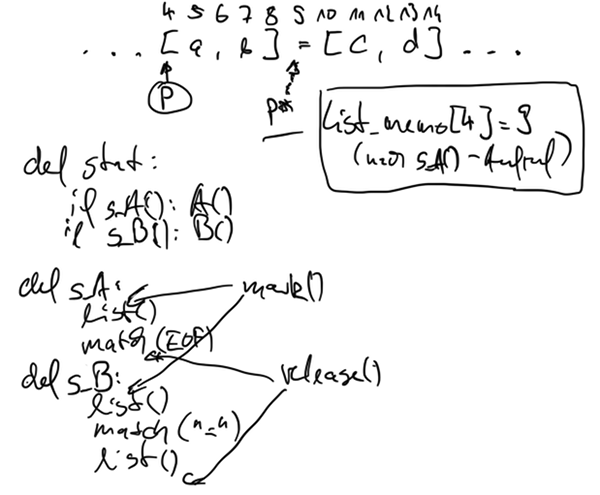 4 5 6 7 8 9 10 11 12 13 14
... [a, b] = [c, d] ...
P
p*
list_memo[4] = 9
(nach s_A() - Aufruf)
def stat:
if s_A(): A()
if s_B(): B()
def s_A: mark()
list()
match(EOF)
def s_B: release()
list()
match("=")
list()